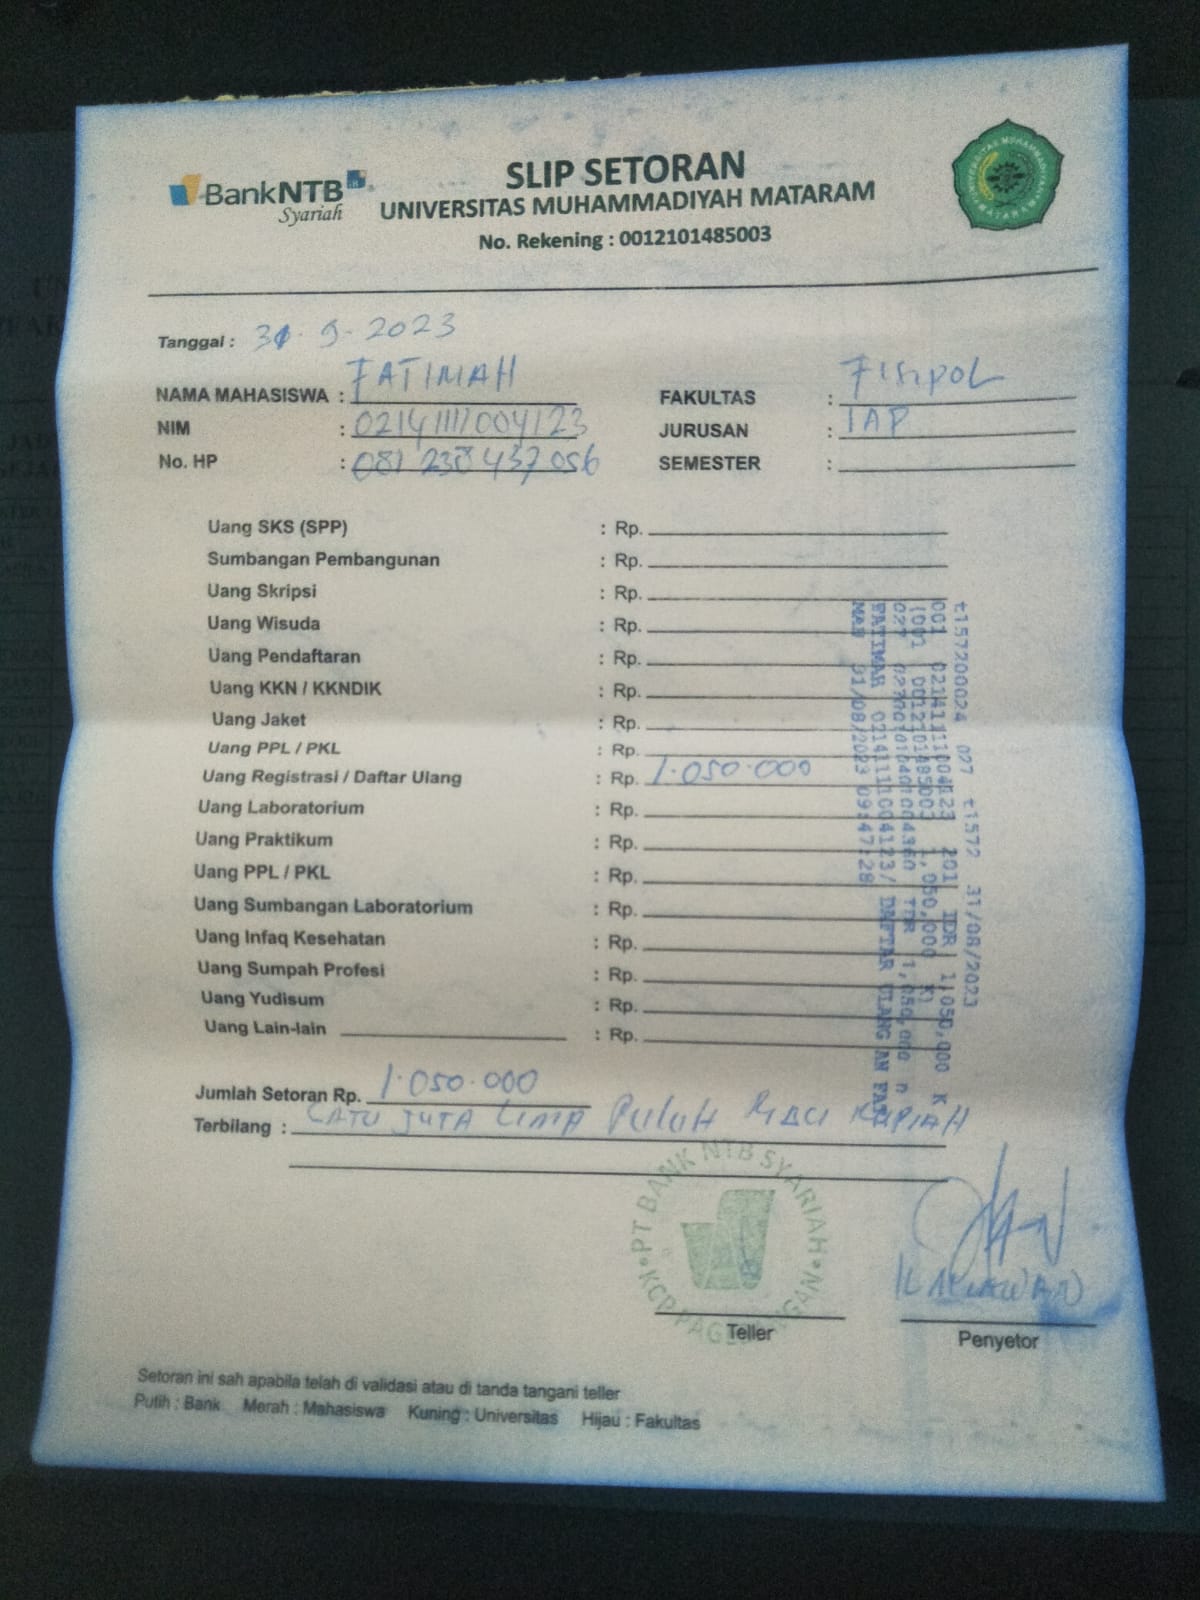 BankNTB Syariah
SLIP SETORAN
UNIVERSITAS MUHAMMADIYAH MATARAM
No. Rekening : 0012101485003
UNIVERSITAS MUHAMMADIYAH MATARAM
Tanggal : 31-9-2023
NAMA MAHASISWA : FATIMAH
NIM : 02141111004123
No. HP : 081 238 437 056
FAKULTAS : FISIPOL
JURUSAN : IAP
SEMESTER :
Uang SKS (SPP) : Rp.
Sumbangan Pembangunan : Rp.
Uang Skripsi : Rp.
Uang Wisuda : Rp.
Uang Pendaftaran : Rp.
Uang KKN / KKNDIK : Rp.
Uang Jaket : Rp.
Uang PPL / PKL : Rp.
Uang Registrasi / Daftar Ulang : Rp. 1.050.000
Uang Laboratorium : Rp.
Uang Praktikum : Rp.
Uang PPL / PKL : Rp.
Uang Sumbangan Laboratorium : Rp.
Uang Infaq Kesehatan : Rp.
Uang Sumpah Profesi : Rp.
Uang Yudisum : Rp.
Uang Lain-lain : Rp.
t157200024 027 t1572 31/08/2023
001 02141111004123 201 IDR 1,050,000 K
1001 0012101485003 1,050,000 K1
027 0270010401004360 IDR 1,050,000 n
FATIMAH 02141111004123/ DAFTAR ULANG AN FATI
MAH 31/08/2023 09:47:28
Jumlah Setoran Rp. 1.050.000
Terbilang : SATU JUTA LIMA PULUH RIBU RUPIAH
PT BANK NTB SYARIAH
Teller
Penyetor
Setoran ini sah apabila telah di validasi atau di tanda tangani teller
Putih : Bank Merah : Mahasiswa Kuning : Universitas Hijau : Fakultas